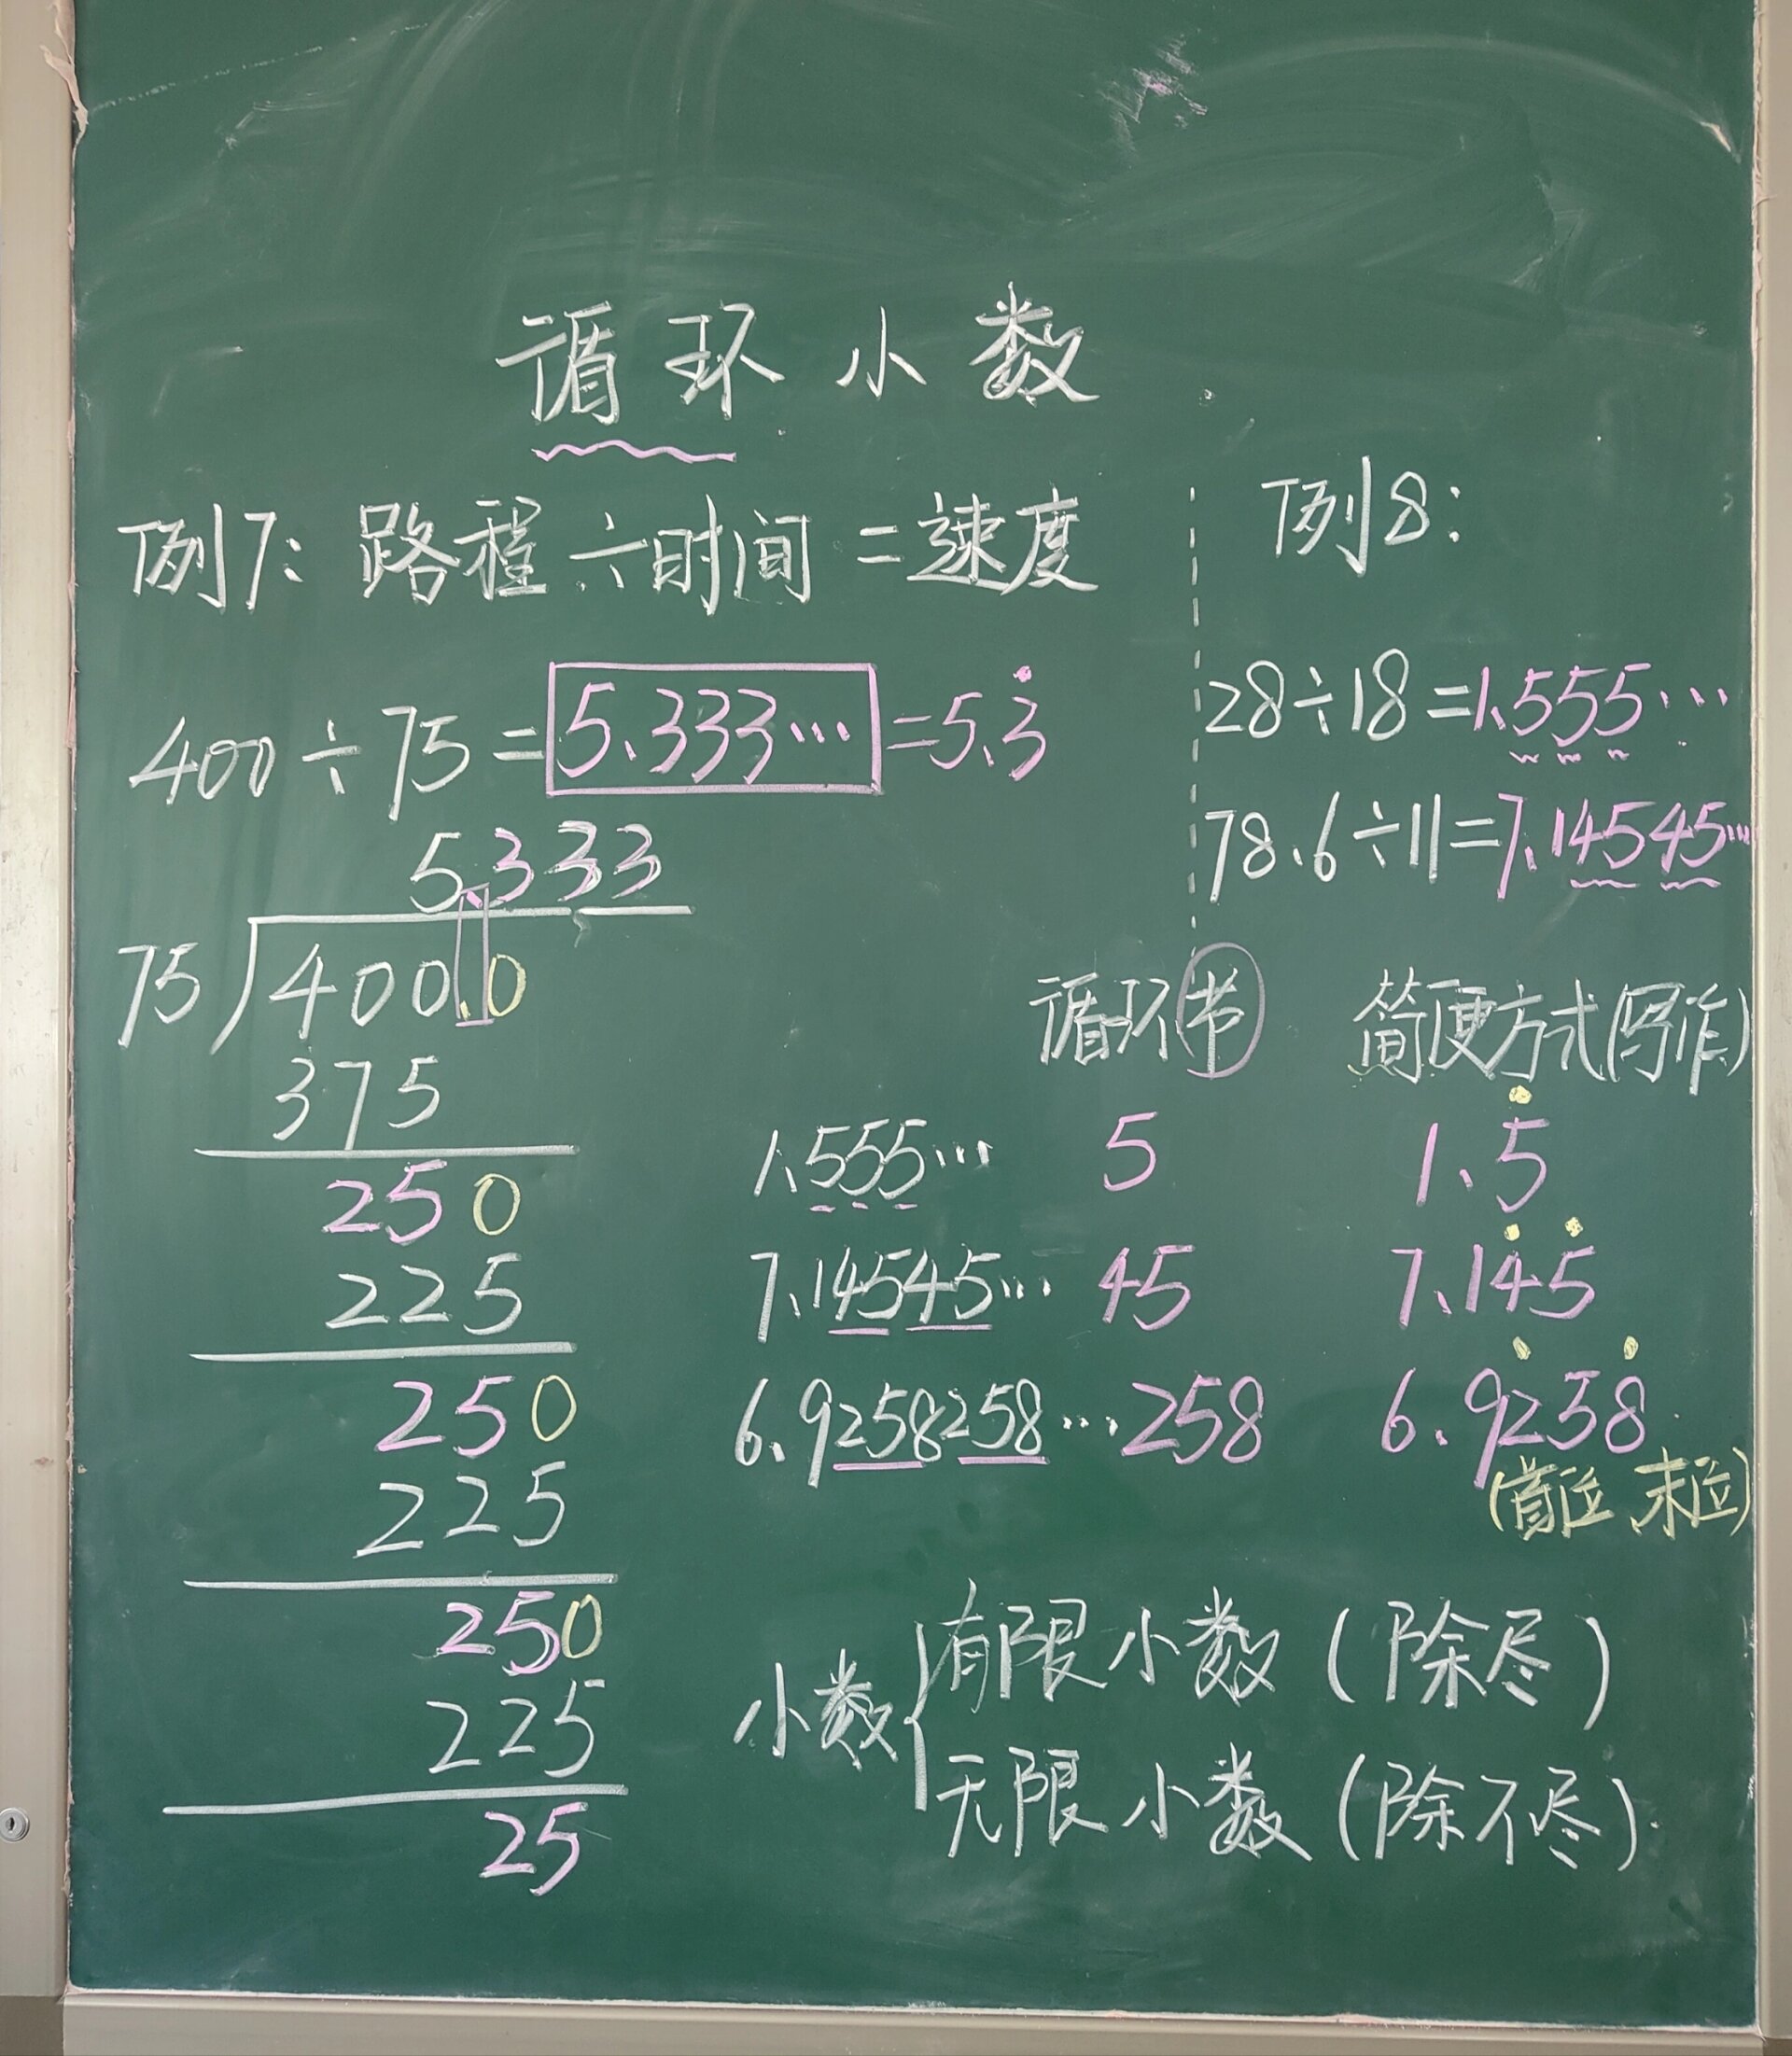 循环小数
例7: 路程÷时间=速度
400÷75=5.333…=5.3̇
5.333
75 400.0
375
250
225
250
225
250
225
25
例8:
28÷18=1.555…
78.6÷11=7.14545…
循环节 简便方式(写作)
1.555… 5 1.5̇
7.14545… 45 7.14̇5̇
6.9258258… 258 6.92̇58̇
(首位、末位)
小数
有限小数(除尽)
无限小数(除不尽).